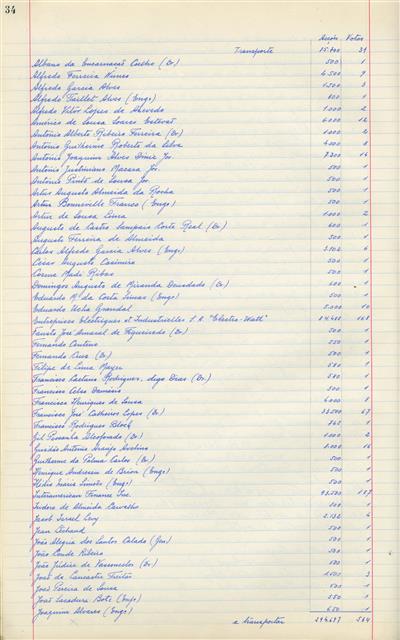 34
Accões Votos
Transporte 15.700 31
Albano da Encarnação Coelho (Dr) 500 1
Alfredo Ferreira Nunes 4.500 9
Alfredo Garcia Alves 1.500 3
Alfredo Alves (Engº) 600 1
Alfredo Vitor Lopes de Azevedo 1.000 2
Américo de Sousa Soares 6.000 12
António Alberto Ribeiro Ferreira (Dr) 1.000 2
António Guilherme Roberto da Silva 4.000 8
António Joaquim Alves Diniz Jor. 16
António Justiniano 500 1
António Pinto de Sousa Jor 500 1
Artur Augusto Almeida da Rocha 500 1
Artur Bonneville Franco (Engº) 500 1
Artur de Sousa Lima 1.000 2
Augusto de Castro Sampaio Corte Real (Dr) 600 1
Augusto Ferreira de Almeida 500 1
Carlos Alfredo Garcia Alves (Engº) 6
Cesar Augusto Casimiro 500 1
Cosme Ribas 500 1
Domingos Augusto de Miranda Deusdado (Dr) 600 1
Eduardo Mª da Costa (Engº) 500 1
Eduardo Grandal 5.000 10
Entreprises Electriques et Industrielles S.A. "Electro-Watt" 168
Fausto José Amaral de Figueiredo (Dr) 500 1
Fernando Centeno 1
Fernando Cruz (Dr) 500 1
Filipe de Lima Mayer 500 1
Francisco Caetano Rodrigues, digo Dias (Dr.) 500 1
Francisco Celso 500 1
Francisco Henriques de Sousa 4.000 8
Francisco José Lopes (Dr) 33.500 67
Francisco Rodrigues Bloch 1
Gil Pessanha (Dr) 1.000 2
António Araujo Avelino 8.000 16
Guilherme da Palma Carlos (Dr) 500 1
Henrique Andresen de Brion (Engº) 500 1
Simões (Engº) 500 1
Interamerican Finance Inc. 93.500 187
Isidoro de Almeida Carvalho 500 1
Jacob Israel Levy 4
Jean 500 1
João Alegria dos Santos Calado 500 1
João Conde Ribeiro 500 1
João Isidro de Vasconcelos (Dr) 500 1
João de Lancastre Freitas 3
João Pereira de Sousa 500 1
João Sacadura Bote (Engº) 550 1
Joaquim Alvares (Engº) 1
a transportar 584